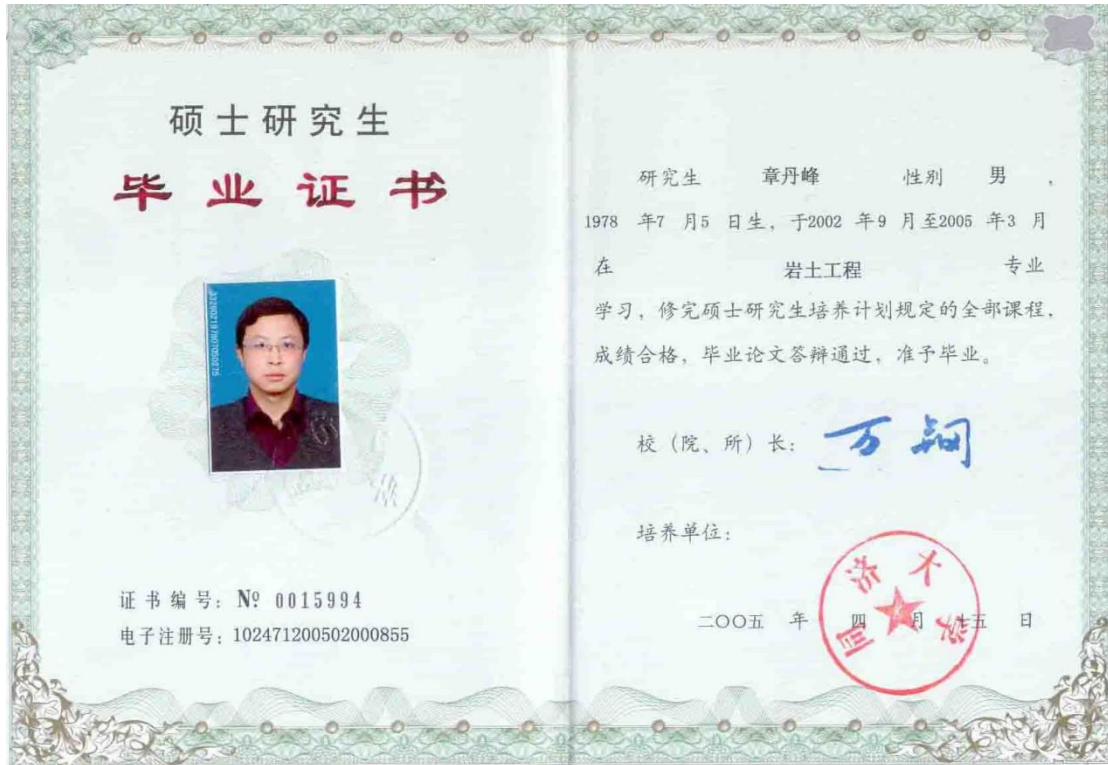 硕士研究生
毕业证书
证书编号：№ 0015994
电子注册号：102471200502000855
研究生 章丹峰 性别 男 ，
1978 年7 月5 日生，于2002 年9 月至2005 年3 月
在 岩土工程 专业
学习，修完硕士研究生培养计划规定的全部课程，
成绩合格，毕业论文答辩通过，准予毕业。
校（院、所）长： 万钢
培养单位：
同济大学
二〇〇五 年 四 月 十五 日